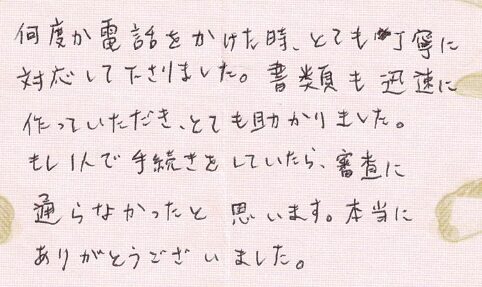 何度か電話をかけた時、とても丁寧に
対応して下さりました。書類も迅速に
作っていただき、とても助かりました。
もし1人で手続きをしていたら、審査に
通らなかったと思います。本当に
ありがとうございました。